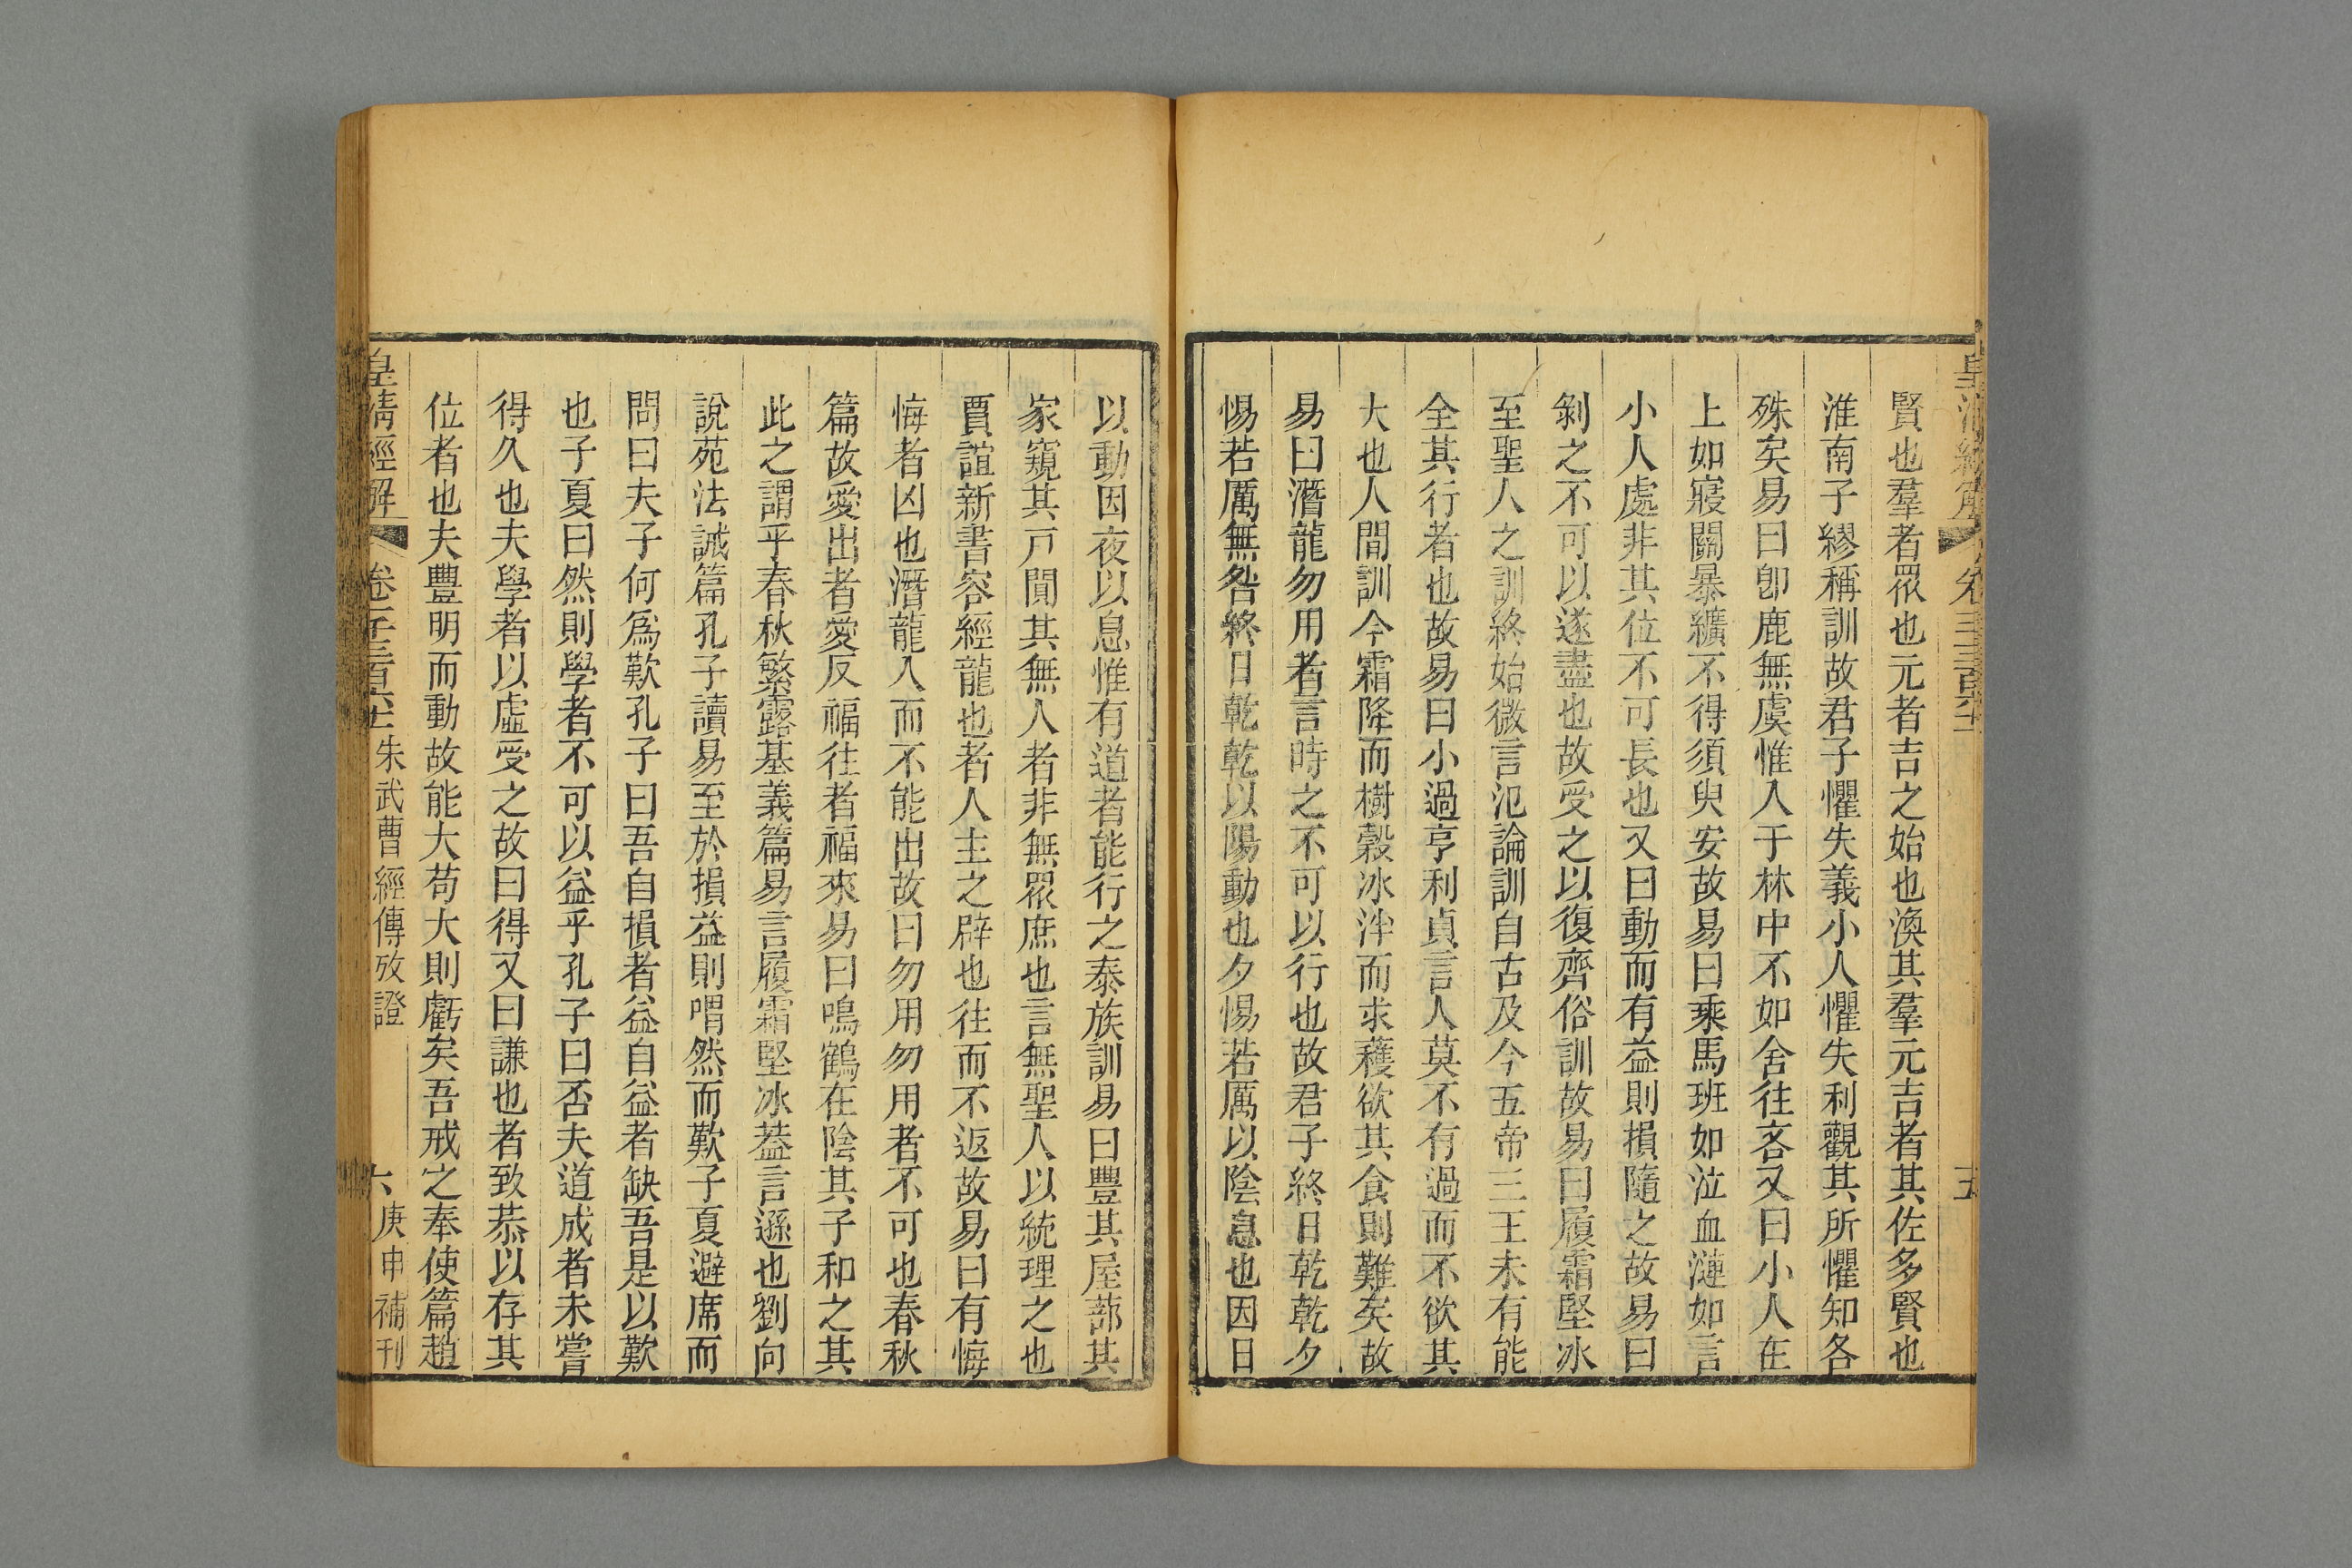 賢也羣者眾也元者吉之始也渙其羣元吉者其佐多賢也
淮南子繆稱訓故君子懼失義小人懼失利觀其所懼知各
殊矣易曰卽鹿無虞惟入于林中不如舍往吝又曰小人在
上如寢關暴纊不得須臾安故易曰乘馬班如泣血漣如言
小人處非其位不可長也又曰動而有益則損隨之故易曰
剝之不可以遂盡也故受之以復齊俗訓故易曰履霜堅冰
至聖人之訓終始微言氾論訓自古及今五帝三王未有能
全其行者也故易曰小過亨利貞言人莫不有過而不欲其
大也人間訓今霜降而樹穀冰泮而求穫欲其食則難矣故
易曰潛龍勿用者言時之不可以行也故君子終日乾乾夕
惕若厲無咎終日乾乾以陽動也夕惕若厲以陰息也因日
以動因夜以息惟有道者能行之泰族訓易曰豐其屋蔀其
家窺其戸闃其無人者非無眾庶也言無聖人以統理之也
賈誼新書容經龍也者人主之辟也往而不返故易曰有悔
悔者凶也潛龍入而不能出故曰勿用勿用者不可也春秋
篇故愛出者愛反福往者福來易曰鳴鶴在陰其子和之其
此之謂乎春秋繁露基義篇易言履霜堅冰葢言遜也劉向
說苑法誡篇孔子讀易至於損益則喟然而歎子夏避席而
問曰夫子何爲歎孔子曰吾自損者益自益者缺吾是以歎
也子夏曰然則學者不可以益乎孔子曰否夫道成者未嘗
得久也夫學者以虛受之故曰得又曰謙也者致恭以存其
位者也夫豐明而動故能大苟大則虧矣吾戒之奉使篇趙
皇清經解 朱武曹經傳攷證 六 庚申補刊